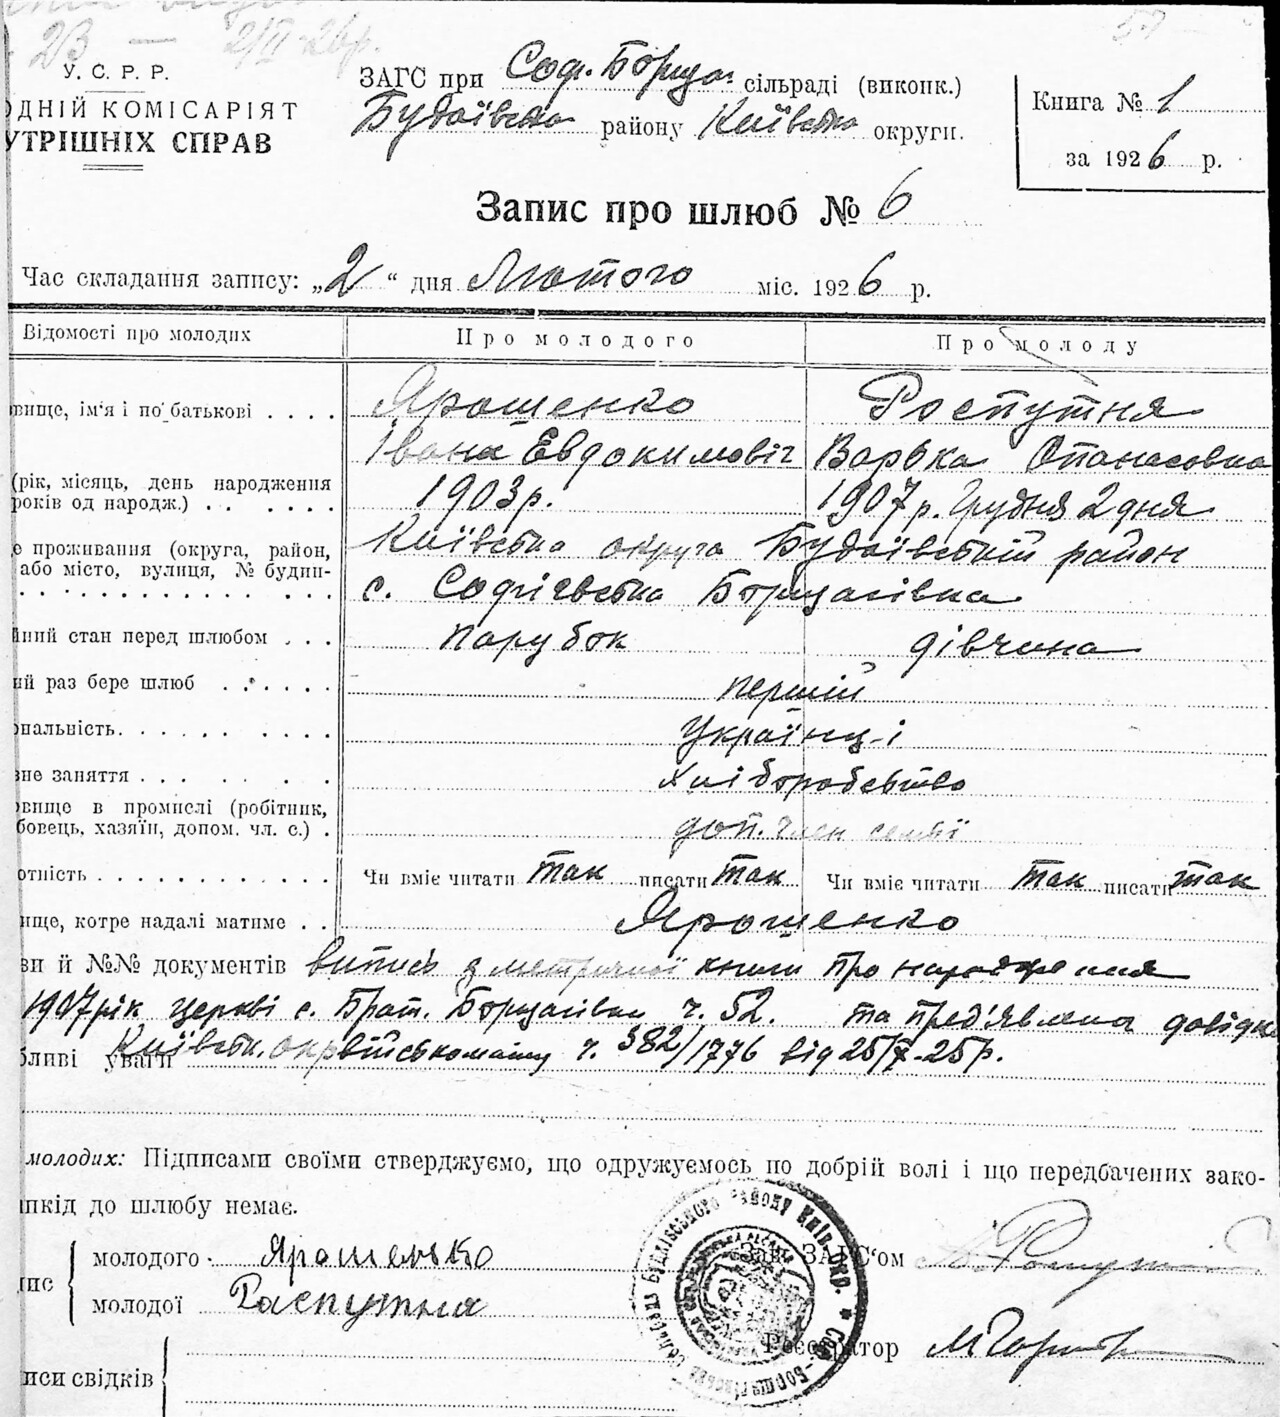 23 — 2/II-26р.
У. С. Р. Р.
ОДНІЙ КОМІСАРІЯТ
УТРІШНІХ СПРАВ
ЗАГС при Соф. Борщаг. сільраді (виконк.)
Будаївська району Київська округи.
Книга № 1
за 1926 р.
Запис про шлюб № 6
Час складання запису: „2“ дня Лютого міс. 1926 р.
Відомості про молодих
Про молодого
Про молоду
вище, ім'я і по батькові . . . . Ярошенко Роспутня
Івана Евдокимовіч Варька Опанасовна
(рік, місяць, день народження
років од народж.) . . . . . . 1903р. 1907р. Грудня 2 дня
е проживання (округа, район, Київська округа Будаївській район
або місто, вулиця, № будин-
с. Софіівська Борщагівка
йний стан перед шлюбом . . . парубок дівчина
ий раз бере шлюб . . . . . . першій
ональність. . . . . . . . . Українц-і
вне заняття . . . . . . Хліборобство
овище в промислі (робітник,
бовець, хазяїн, допом. чл. с.) . доп. член семьї
отність . . . . . . . . . . . . Чи вміє читати так писати так Чи вміє читати так писати так
ище, котре надалі матиме . . Ярошенко
ви й №№ документів випись з метричної книги про народження
1907рік церкві с. Брат. Борщагівки ч. 52. та пред'явлена довідка
бливі уваги Київськ. окрвійськомату ч. 382/1776 від 25/X-25р.
молодих: Підписами своїми стверджуємо, що одружуємось по добрій волі і що передбачених зако-
шкід до шлюбу немає.
пис
молодого Ярошенько
молодої Распутня
Зав. ЗАГС'ом
Реєстратор
писи свідків